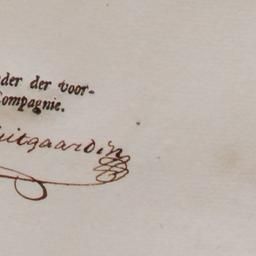 der der voor-
Compagnie.
uitgaarding